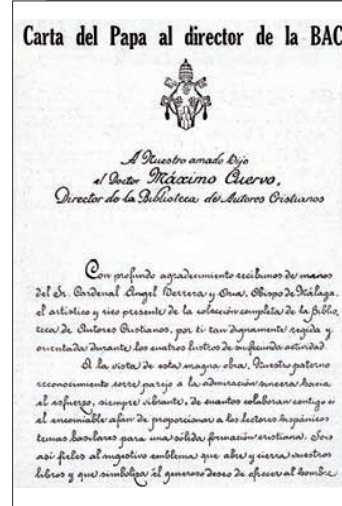 Carta del Papa al director de la BAC
A Nuestro amado Hijo
el Doctor Máximo Cuervo,
Director de la Biblioteca de Autores Cristianos
Con profundo agradecimiento recibimos de manos
del Sr. Cardenal Angel Herrera y Oria, Obispo de Málaga,
el artístico y rico presente de la colección completa de la Biblio-
teca de Autores Cristianos, por ti tan dignamente regida y
orientada durante los cuatro lustros de su fecunda actividad.
A la vista de esta magna obra, Nuestro paterno
reconocimiento corre parejo a la admiración sincera hacia
el esfuerzo, siempre vibrante, de cuantos colaboran contigo en
el encomiable afán de proporcionar a los lectores hispánicos
temas basilares para una sólida formación cristiana. Sois
así fieles al sugestivo emblema que abre y cierra vuestros
libros y que simboliza el generoso deseo de ofrecer al hombre